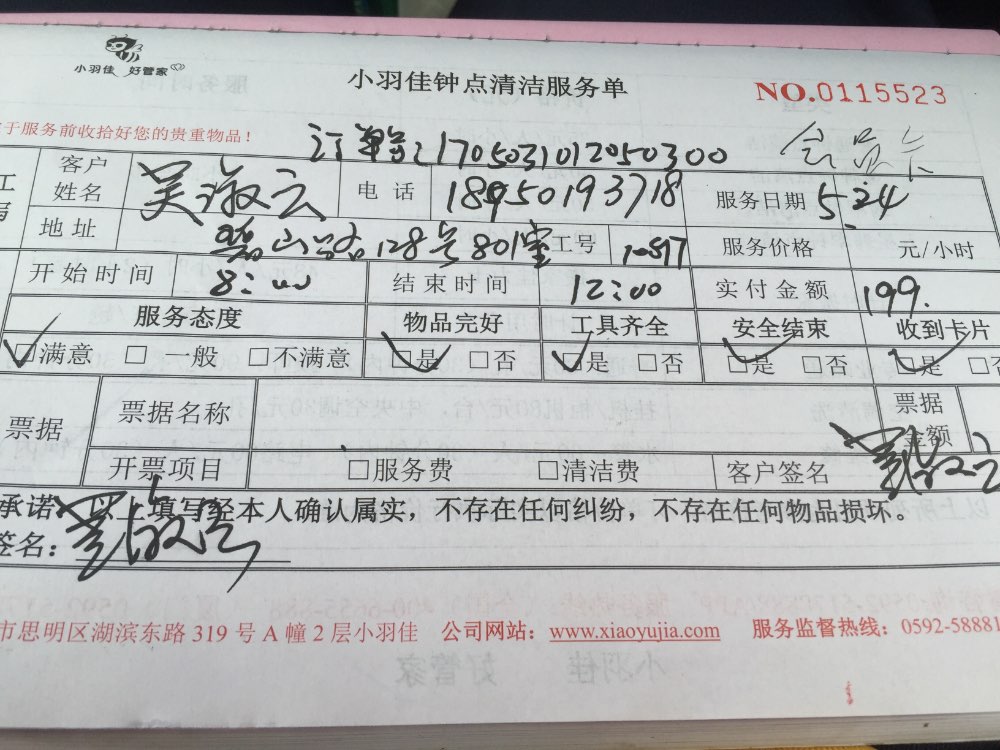 小羽佳 好管家
小羽佳钟点清洁服务单
NO.0115523
于服务前收拾好您的贵重物品！
订单号:170503101205030​0 会员卡
客户姓名 吴淑云 电话 18950193718 服务日期 5-24
地址 山路128号801室 工号 服务价格 元/小时
开始时间 8:00 结束时间 12:00 实付金额 199.
服务态度 物品完好 工具齐全 安全结束 收到卡片
☑满意 □一般 □不满意 ☑是 □否 ☑是 □否 ☑是 □否 ☑是 □否
票据 票据名称 票据金额
开票项目 □服务费 □清洁费 客户签名 吴淑云
承诺：以上填写经本人确认属实，不存在任何纠纷，不存在任何物品损坏。
签名：吴淑云
市思明区湖滨东路 319 号 A 幢 2 层小羽佳 公司网站：www.xiaoyujia.com 服务监督热线：0592-58881